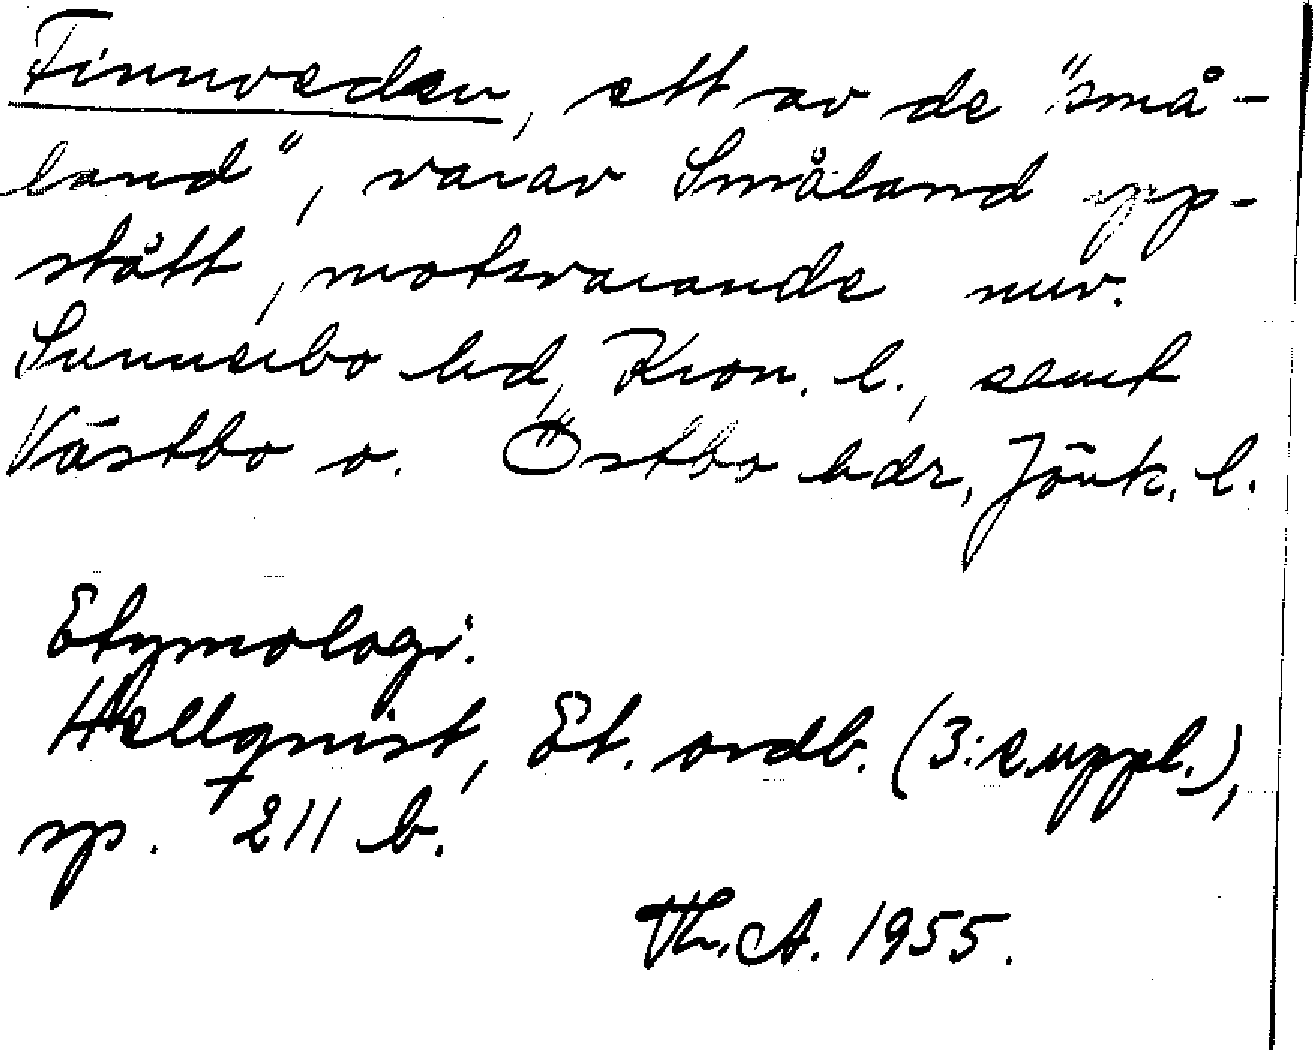 Finnveden, ett av de "små-
land", varav Småland upp-
stått, motsvarande nuv.
Sunnerbo hd, Kron. l., samt
Västbo o. Östbo hdr, Jönk. l.
Etymologi:
Hellquist, Et. ordb. (3:e uppl.),
sp. 211 b.
Th. A. 1955.